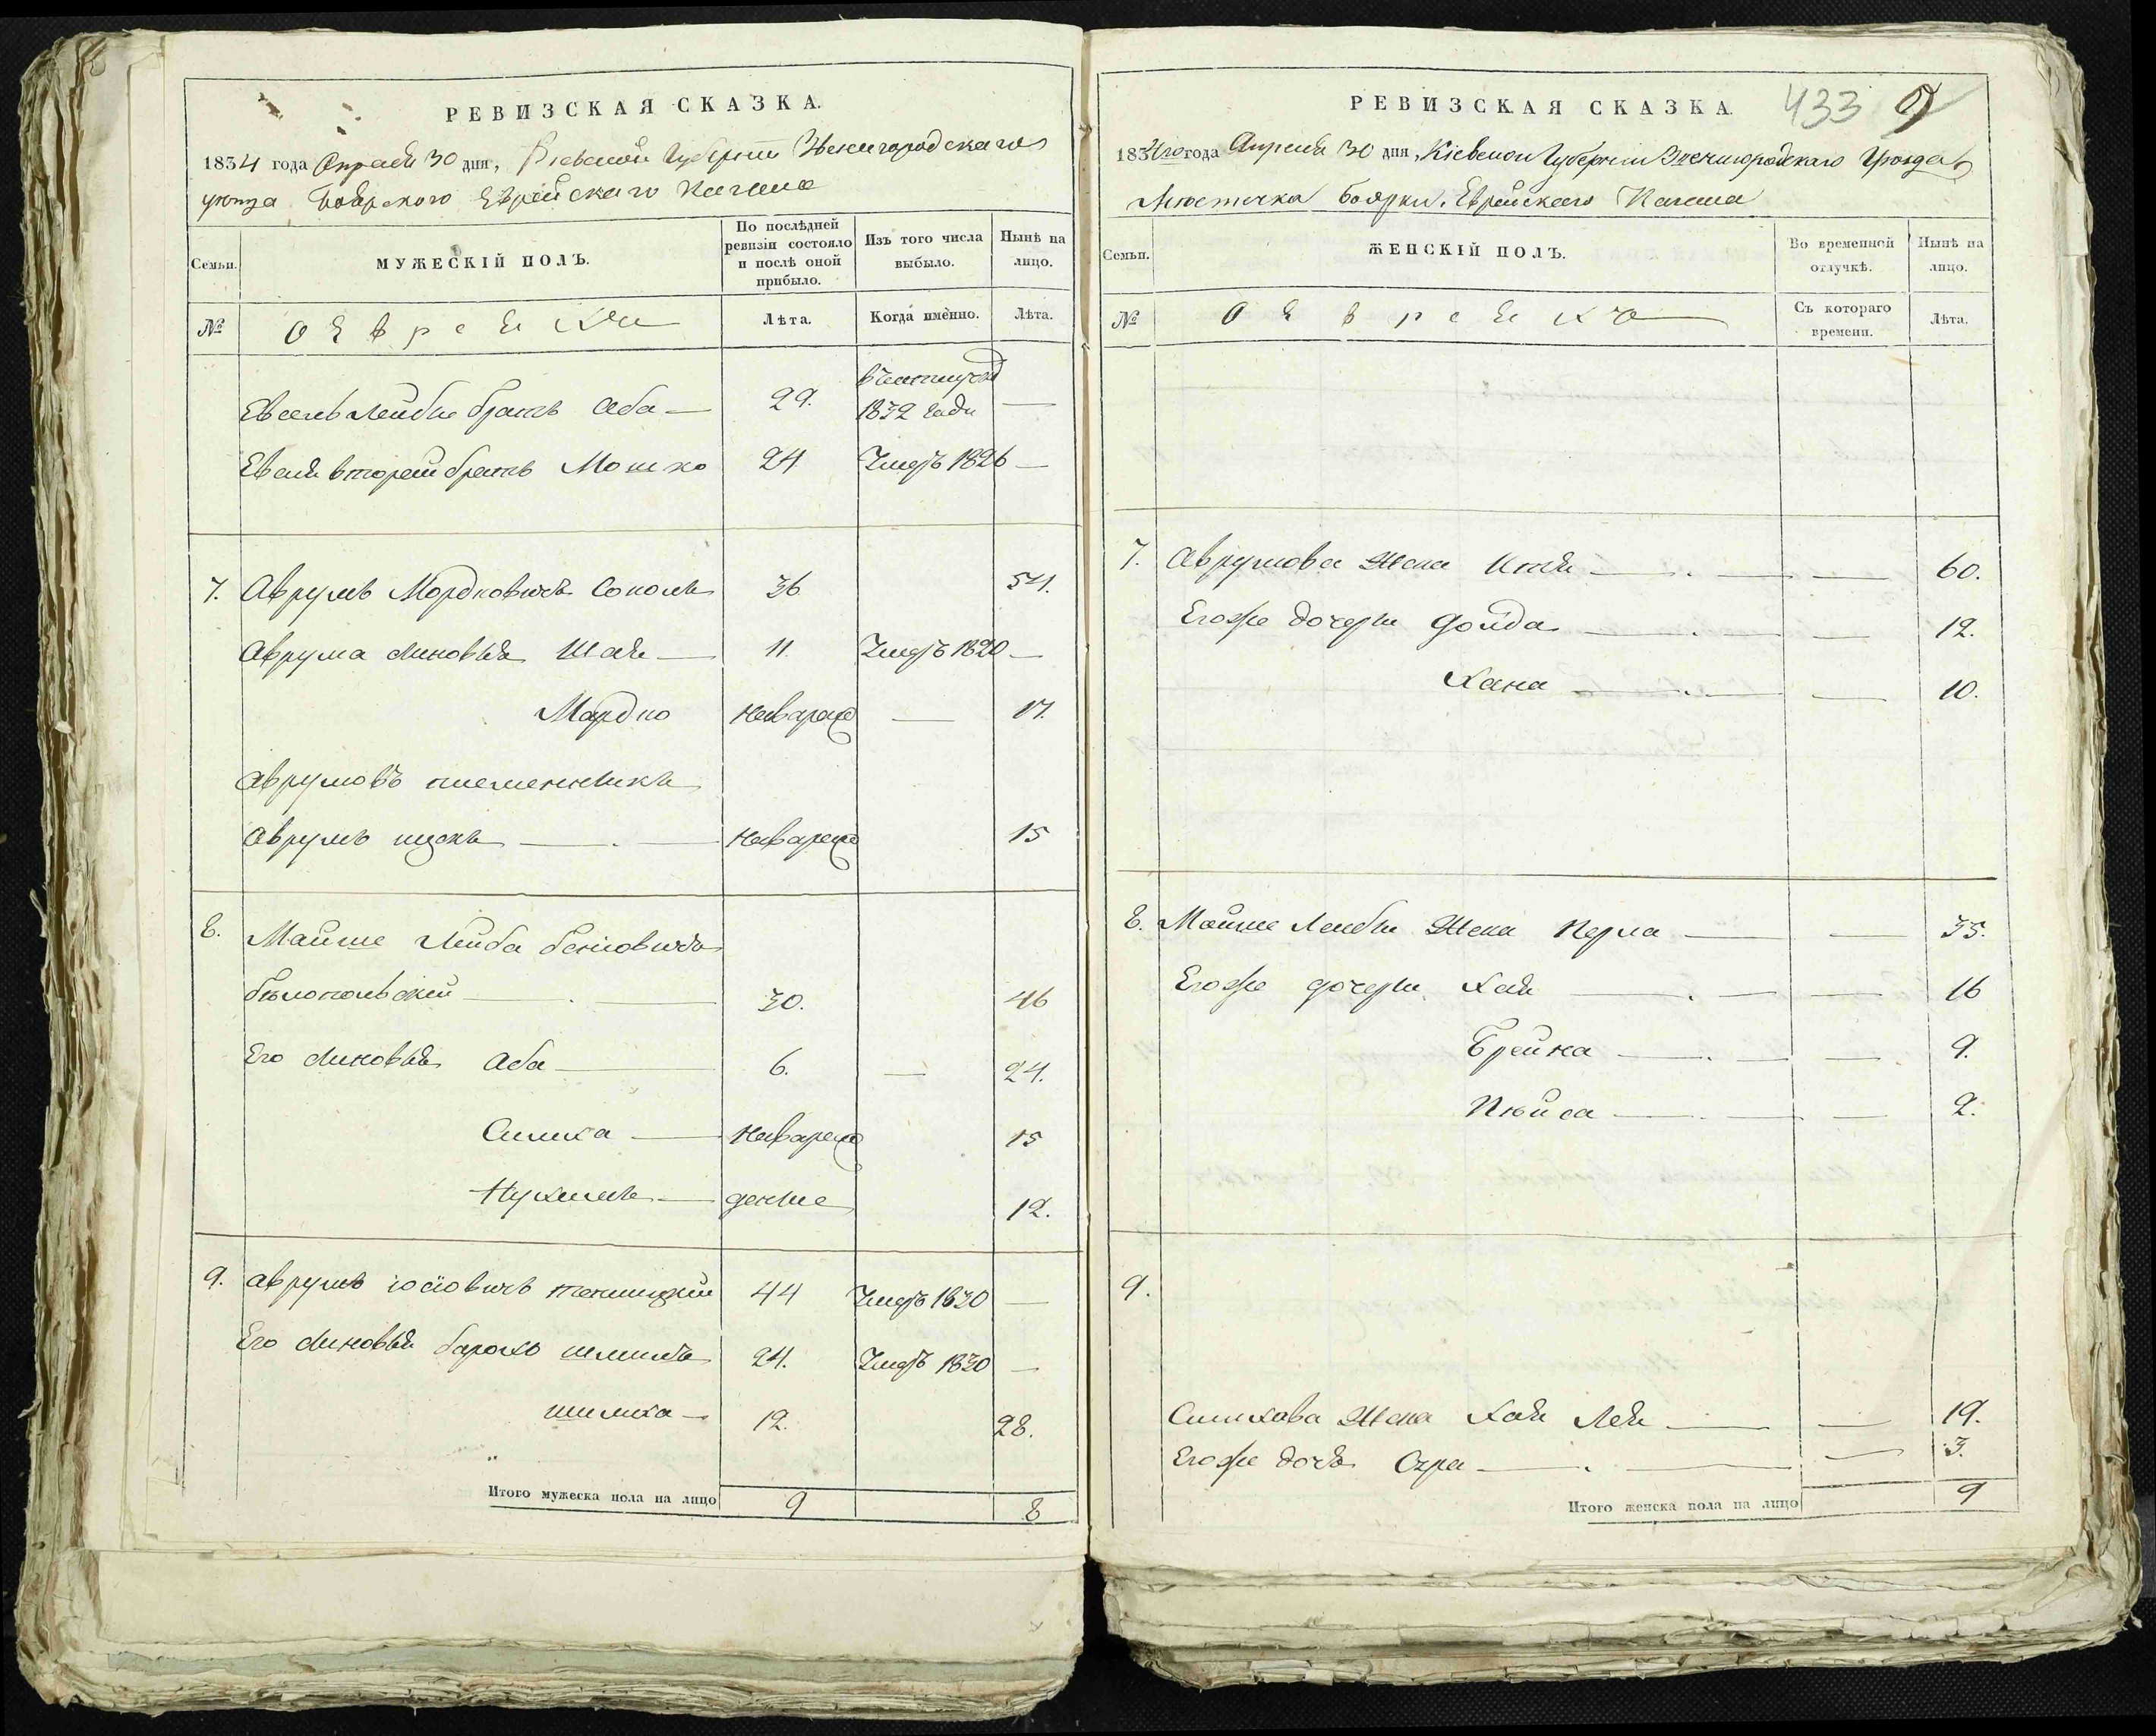 РЕВИЗСКАЯ СКАЗКА.
1834 года Апреля 30 дня, Киевской Губернии Звенигородскаго
уезда Боярского Еврейскаго Кагала
Семьи.
МУЖЕСКІЙ ПОЛЪ.
По послѣдней ревизіи состояло и послѣ оной прибыло.
Изъ того числа выбыло.
Нынѣ на лицо.
№
О Евреяхъ
Лѣта.
Когда имѣнно.
Лѣта.
Евселя Лейбы братъ Аба — 29. 1832 года —
Евселя вторый братъ Мошко 24 Умеръ 1826 —
7. Аврумъ Мордковичъ Соколъ 36 54.
Аврума сыновья Шая — 11 Умеръ 1820 —
Мордко — 17.
Аврумовъ племенникъ
Аврумъ Ицекъ — 15
8. Майше Лейба
30. 46
Его сыновья Аба — 6. — 24.
Симха — 15
Нухимъ — 12.
9. Аврумъ Іосіовичъ 44 Умеръ 1830 —
Его сыновья Борохъ Шмиль 24. Умеръ 1830 —
Шимха — 12. 28.
Итого мужеска пола на лицо 9 8
РЕВИЗСКАЯ СКАЗКА.
433 9
1834го года Апреля 30 дня, Кіевской Губерніи Звенигородскаго Уезда
Местечка Боярки, Еврейскаго Кагала
Семьи.
ЖЕНСКІЙ ПОЛЪ.
Во временной отлучкѣ.
Нынѣ на лицо.
№
О Евреяхъ
Съ котораго времени.
Лѣта.
7. Аврумова Жена Итя — — 60.
Егоже дочери Фойда — — 12.
Хана — — 10.
8. Мойше Лейбы Жена Перла — — 35.
Егоже дочери Хая — — 16
Брейна — — 9.
Нюйса — — 2.
9.
Симхова Жена Хая Лея — — 19.
Егоже дочь Сура — — 3.
Итого женска пола на лицо 9